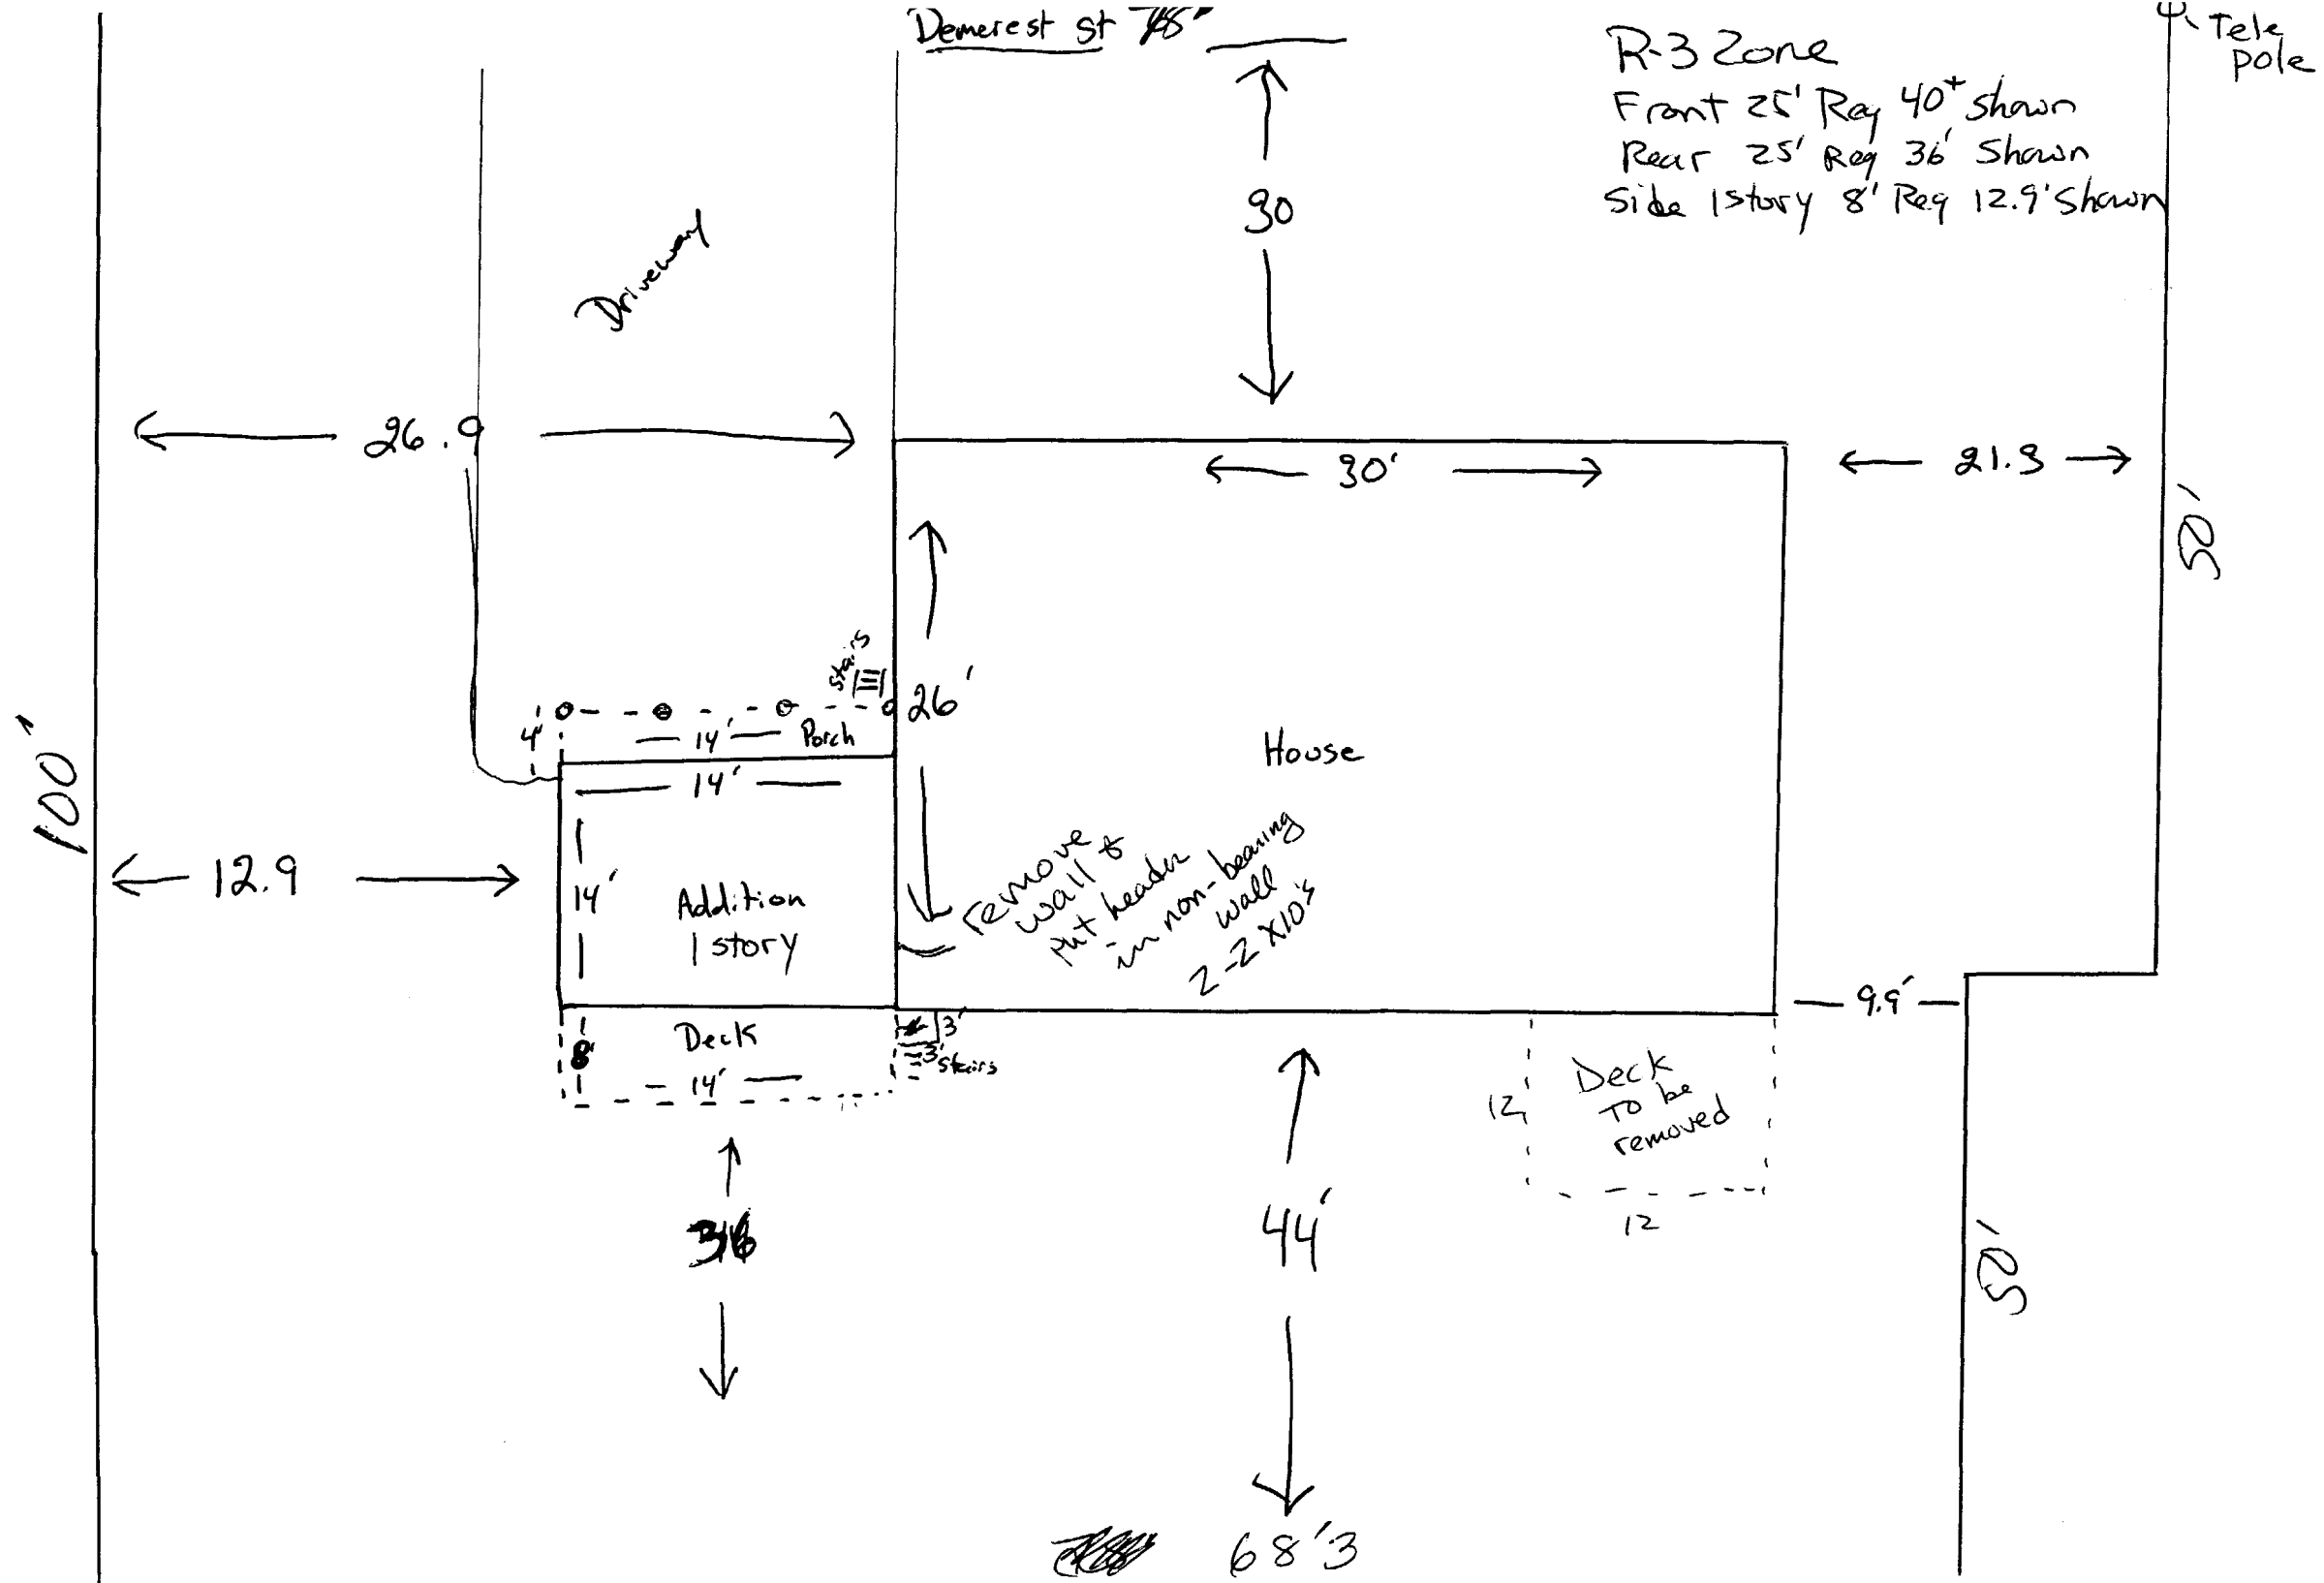 Demerest St 78'
Tele
pole
R-3 Zone
Front 25' Req 40+ shown
Rear 25' Req 36' Shown
Side 1 story 8' Req 12.9' Shown
30
Driveway
26.9
30'
21.3
50'
stairs
26'
4'
14' Porch
14'
House
100'
12.9
14'
Addition
1 story
remove
wall &
put header
in non-bearing
wall
2-2x10's
9.9'
Deck
8'
14'
3'
3'
stairs
Deck
To be
removed
12
12
36
44'
50'
68'3